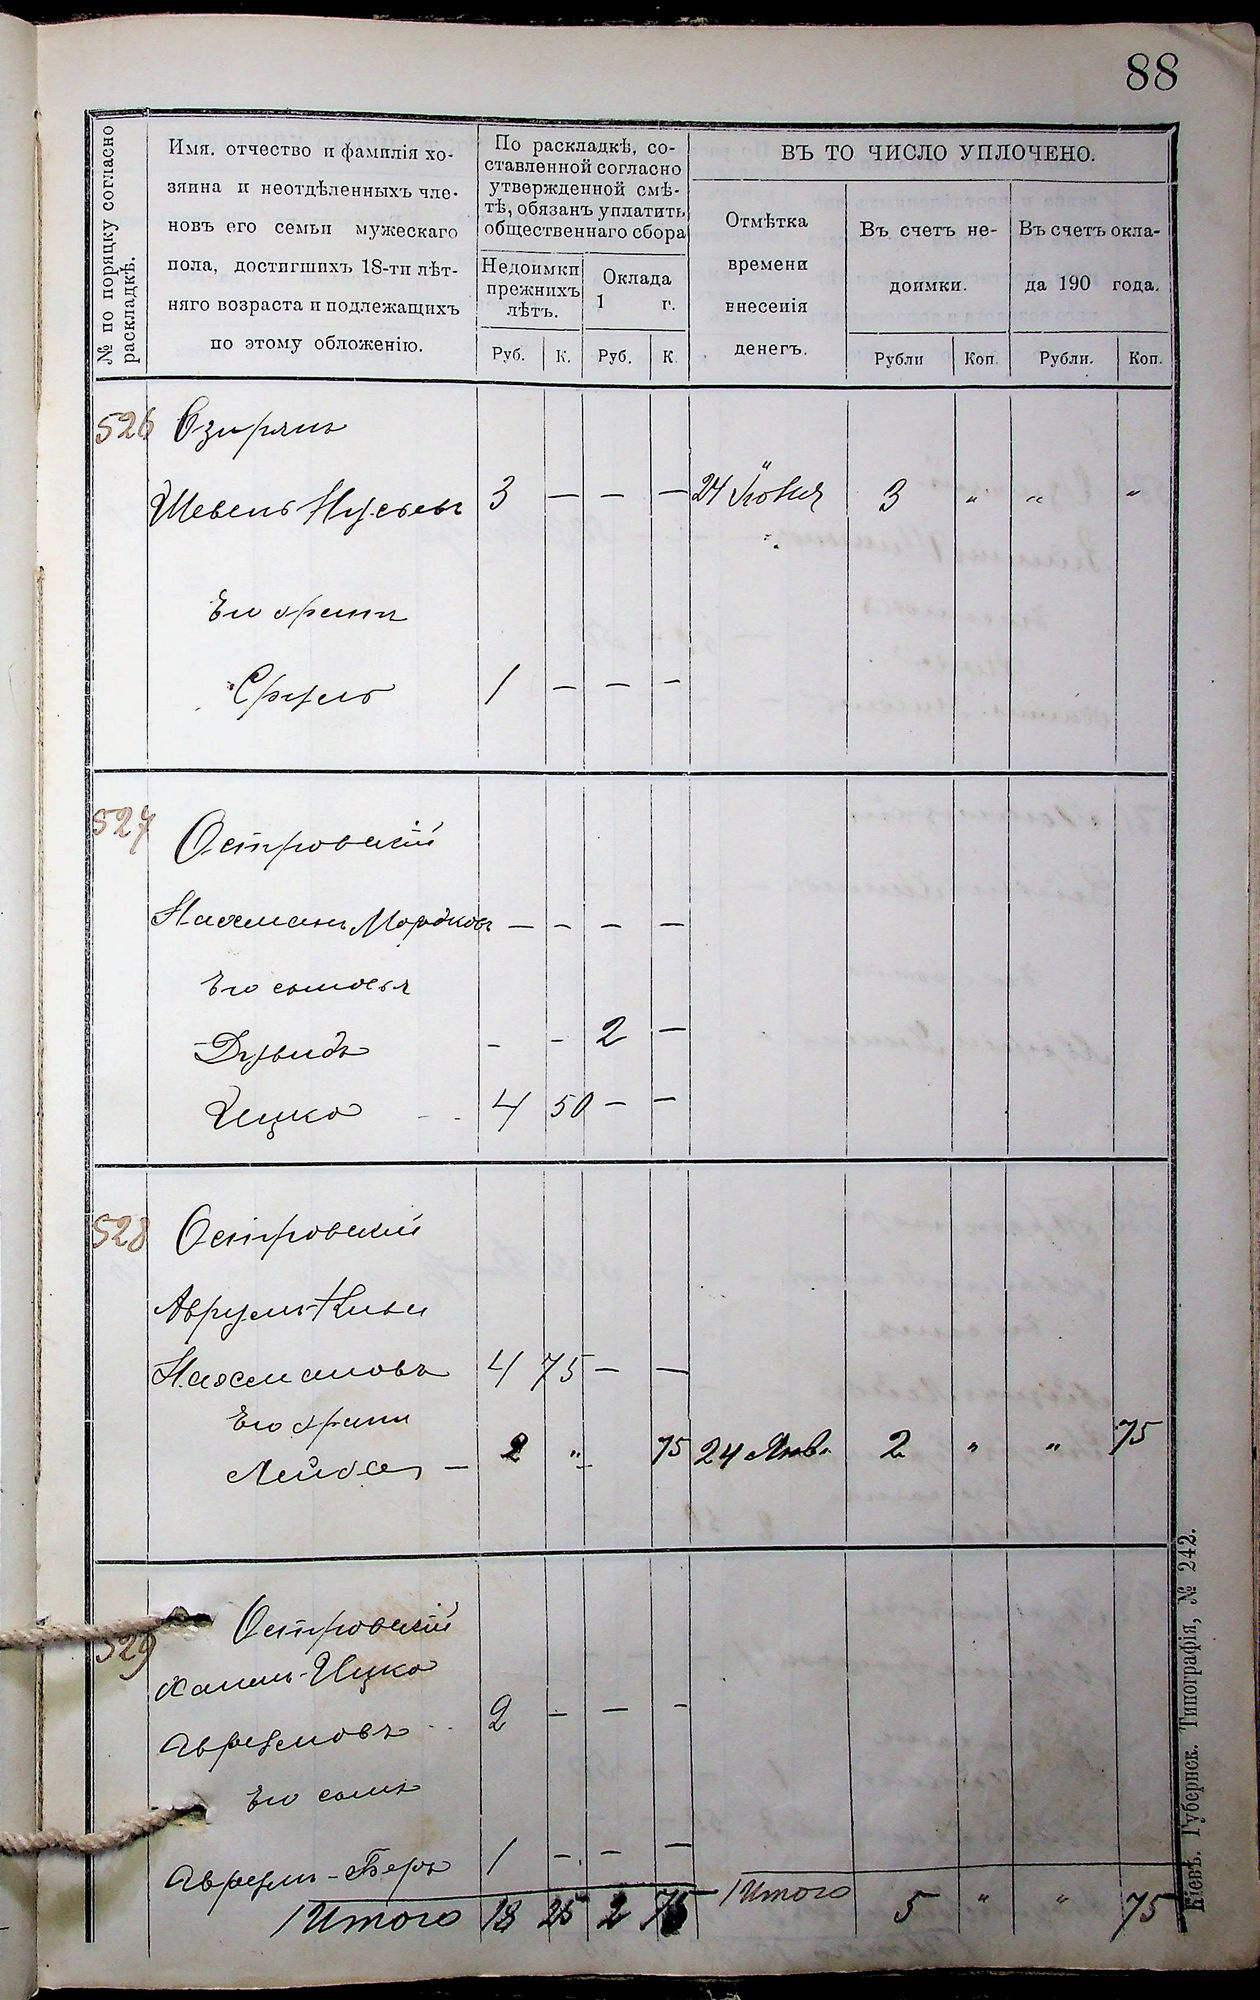 88
№ по порядку согласно раскладкѣ.
Имя, отчество и фамилія хо-
зяина и неотдѣленныхъ чле-
новъ его семьи мужескаго
пола, достигшихъ 18-ти лѣт-
няго возраста и подлежащихъ
по этому обложенію.
По раскладкѣ, со-
ставленной согласно
утвержденной смѣ-
тѣ, обязанъ уплатить
общественнаго сбора
Недоимки
прежнихъ
лѣтъ.
Оклада
1 г.
Руб. К. Руб. К
ВЪ ТО ЧИСЛО УПЛОЧЕНО.
Отмѣтка
времени
внесенія
денегъ.
Въ счетъ не-
доимки.
Въ счетъ окла-
да 190 года.
Рубли Коп. Рубли. Коп.
526 Озирянъ
Шевель Нусевъ 3 — — — 24 3 " " "
Его братъ
Сруль 1 — — —
527 Островскій
Нахманъ Мордковъ — — — —
Его сыновья
Дувидъ - - 2 —
Ицко 4 50 — —
528 Островскій
Аврумъ-
Нахмановъ 4 75 — —
Его братъ
Лейба — 2 " 75 24 Янв. 2 " " 75
529 Островскій
Ханель-Ицко
Аврумовъ 2 — — —
Его сынъ
Аврумъ-Беръ 1 — — —
Итого 18 25 2 75 Итого 5 " " 75
Кіевъ. Губернск. Типографія, № 242.